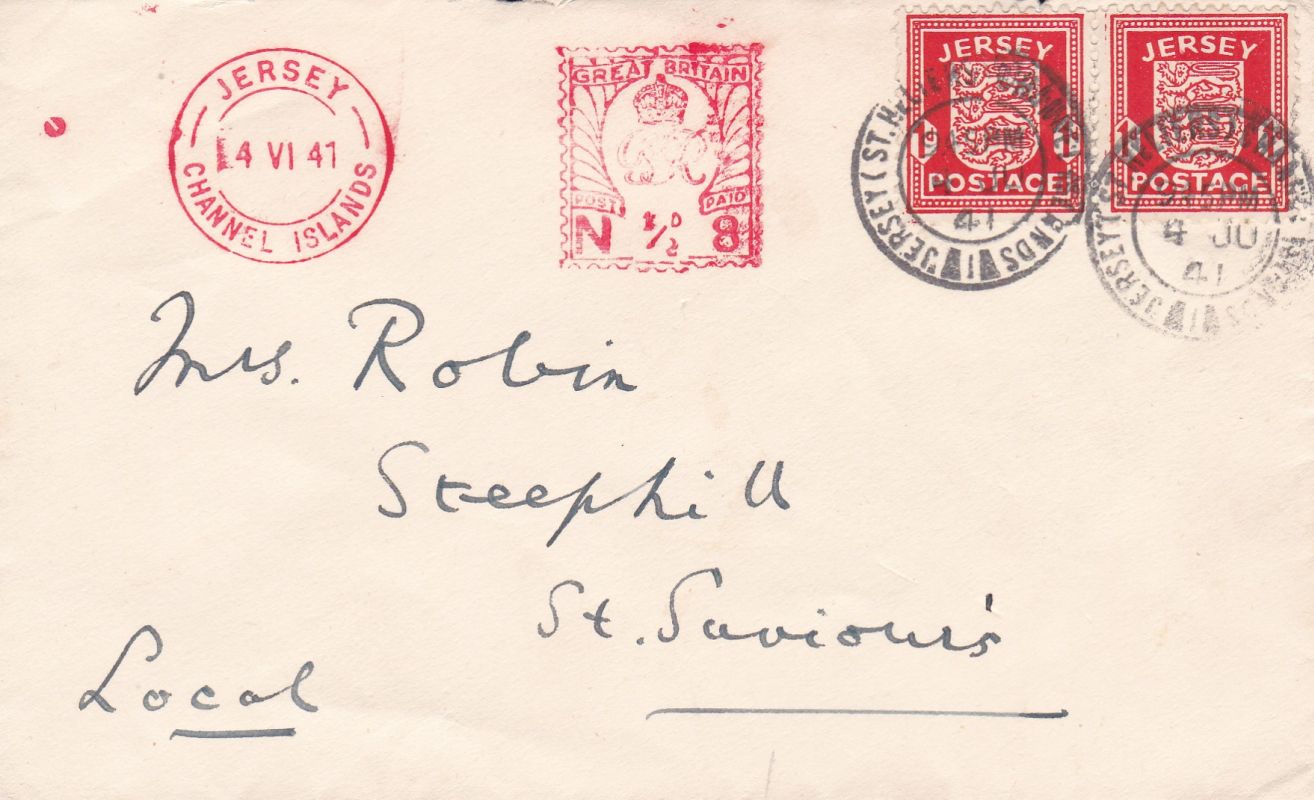 JERSEY
4 VI 41
CHANNEL ISLANDS
GREAT BRITAIN
POST PAID
N ½D 8
JERSEY
1 1
POSTAGE
JERSEY
1 1
POSTAGE
JERSEY
41
ISLANDS
JERSEY
4 JU
41
Mrs. Robin
Steephill
St. Saviour's
Local